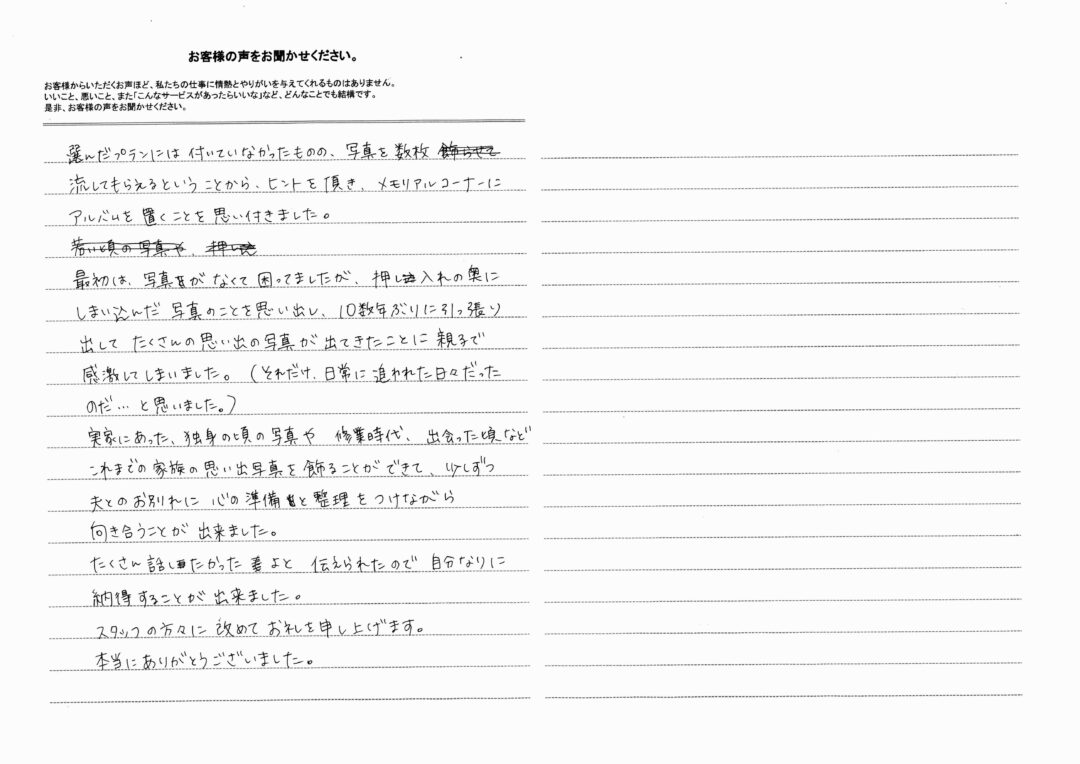 お客様の声をお聞かせください。
お客様からいただくお声ほど、私たちの仕事に情熱とやりがいを与えてくれるものはありません。
いいこと、悪いこと、また「こんなサービスがあったらいいな」など、どんなことでも結構です。
是非、お客様の声をお聞かせください。
選んだプランには付いていなかったものの、写真を数枚
流してもらえるということから、ヒントを頂き、メモリアルコーナーに
アルバムを置くことを思い付きました。
若い頃の写真や、押し
最初は、写真がなくて困ってましたが、押し入れの奥に
しまい込んだ写真のことを思い出し、10数年ぶりに引っ張り
出してたくさんの思い出の写真が出てきたことに親子で
感激してしまいました。(それだけ、日常に追われた日々だった
のだ…と思いました。)
実家にあった、独身の頃の写真や修業時代、出会った頃など
これまでの家族の思い出写真を飾ることができて、少しずつ
夫とのお別れに心の準備と整理をつけながら
向き合うことが出来ました。
たくさん話したかったよと伝えられたので自分なりに
納得することが出来ました。
スタッフの方々に改めてお礼を申し上げます。
本当にありがとうございました。